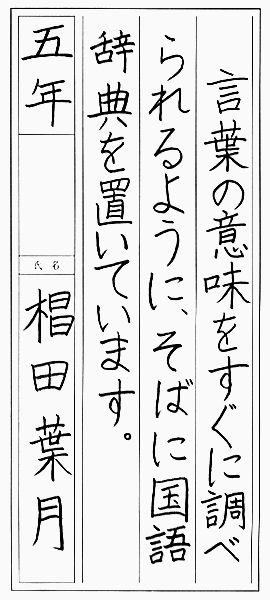 言葉の意味をすぐに調べ
られるように、そばに国語
辞典を置いています。
五年
氏名
椙田葉月